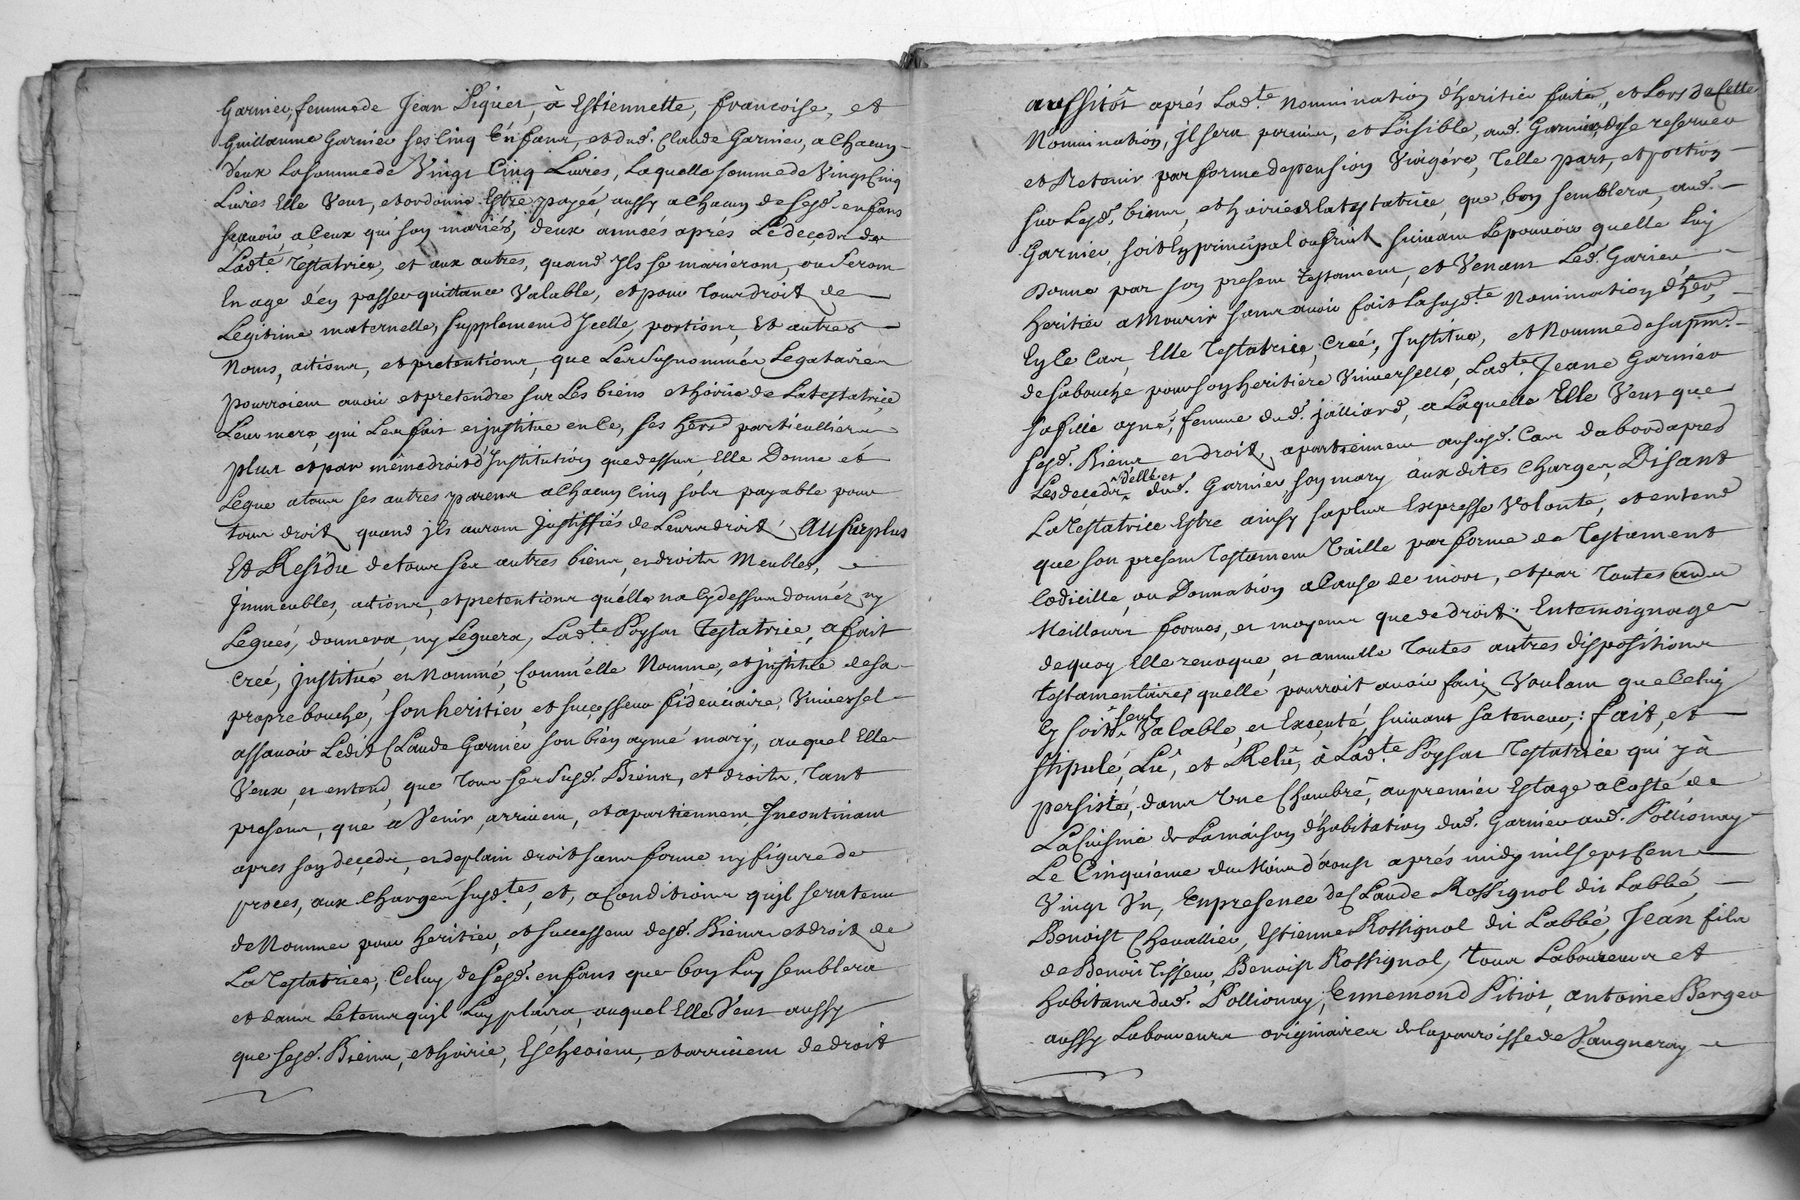 Garnier, femme de Jean Piquet, à Estiennette, francoise, et
Guillaume Garnier ses Cinq Enfans, et dud. Claude Garnier, a Chacun
d'eux La somme de Vingt Cinq Livres, Laquelle somme de Vingt Cinq
Livres Elle Veut, et ordonne Estre payeé, aussy a Chacun de sesd. enfans
sçauoir, a Ceux qui son mariés, deux anneés aprés Le deçeds de
Ladte. Testatrice, et aux autres, quand Ils se marieront, ou Seront
En age d'en passer quittance Valable, et pour Tout droit de
Legitime maternelle, supplement d'Icelle, portions, Et autres
Noms, actions, et pretentions, que Les susnommés Legataires
pourroient auoir et pretendre sur Les biens et hoirie de La testatrice
Leur mere, qui Les fait et justitue en Ce, ses hers particulliers
plus et par même droit d'Institution que dessus, Elle Donne et
Legue a tous ses autres parens a Chacun Cinq sols payable pour
tous droit, quand jls auront justiffiés de Leurs droit, Au surplus
Et Residu de tous ses autres biens, et droits Meubles,
Immeubles, actions, et pretentions qu'elle na Cy dessus donnéz ny
Legués, donnera, ny Leguera, Ladte Poysat Testatrice, a fait
Creé, justitué, et Nommé, Comm'elle Nomme, et justitue de sa
propre bouche, son heritier, et successeur fideiciaire, Universel
assauoir Ledit Claude Garnier son bien aymé mary, auquel Elle
Veux, et entend, que Tous ses susd. Biens, et droits, Tant
present, que a Venir, arrivent, et apartiennent Incontinant
apres son deçeds, et de plain droit sans forme ny figure de
proces, aux Charges susdtes, et, a Conditions qu'jl sera tenu
de Nommer pour heritier, et successeur desd. Biens et droit de
La Testatrice, Celuy de sesd. enfans que bon Luy semblera
et dans Le tems qu'jl Luy plaira, auquel Elle Veut aussy
que sesd. Biens, et hoirie, Eschevient, et arrivient de droit
aussitôt aprés Ladte. Nomination d'heritier faite, et Lors de Cette
Nomination, jl sera permis, et Loisible, aud. Garnier, de se reseruer
et Retenir par forme de pension Viagére, Telle part, et portion
sur Lesd. biens, et hoirie de La testatrice, que bon semblera, aud.
Garnier, soit En principal ou fruit, suivant Le pouvoir qu'elle Luy
Donne par son present Testament, et Venant Led. Garnier
heritier a Mourir sans auoir fait La susdte. Nomination d'her,
En Ce Cas, Elle Testatrice, Creé, Institue, et Nomme de sa pre.
de sa bouche pour son heritiere Universelle, Ladte. Jeane Garnier
sa fille ayné, femme dud. jalliard, a Laquelle Elle Veut que
sesd. Biens et droit, apartiennent aususd. Cas d'abord apres
Les deceds d'elle et dud. Garnier son mary aux dites charges, Disant
La Testatrice Estre ainsy sa plus Expresse Volonte, et entend
que son present Testament Vaille par forme de Testament
Codicille, ou Donnation a Cause de mort, et par Toutes
Meilleurs formes, et moyens que de droit. En temoignage
de quoy Elle revoque, et annulle Toutes autres dispositions
testamentaires, qu'elle pourroit auoir fait, Voulant que Celuy
Cy soit seul Valable, et Executé, suivant sa teneur; fait, et
stipulé, Lû, et Relû, à Ladte. Poysat Testatrice qui y à
persisté, dans Une Chambre, au premier Estage a Costé de
La Cuisine de La maison d'habitation dud. Garnier aud. Pollionay
Le Cinquiéme du Mois d'aoust aprés midy mil sept Cent
Vingt Un, En presence de Claude Rossignol dit Labbé,
Benoist Chevallier, Estienne Rossignol dit Labbé, Jean fils
de Benoit Tisseur, Benoist Rossignol, tous Laboureurs et
habitans dud. Pollionay, Ennemond Pitiot, antoine Berger
aussy Laboureurs originaires de La parroisse de Vaugneray